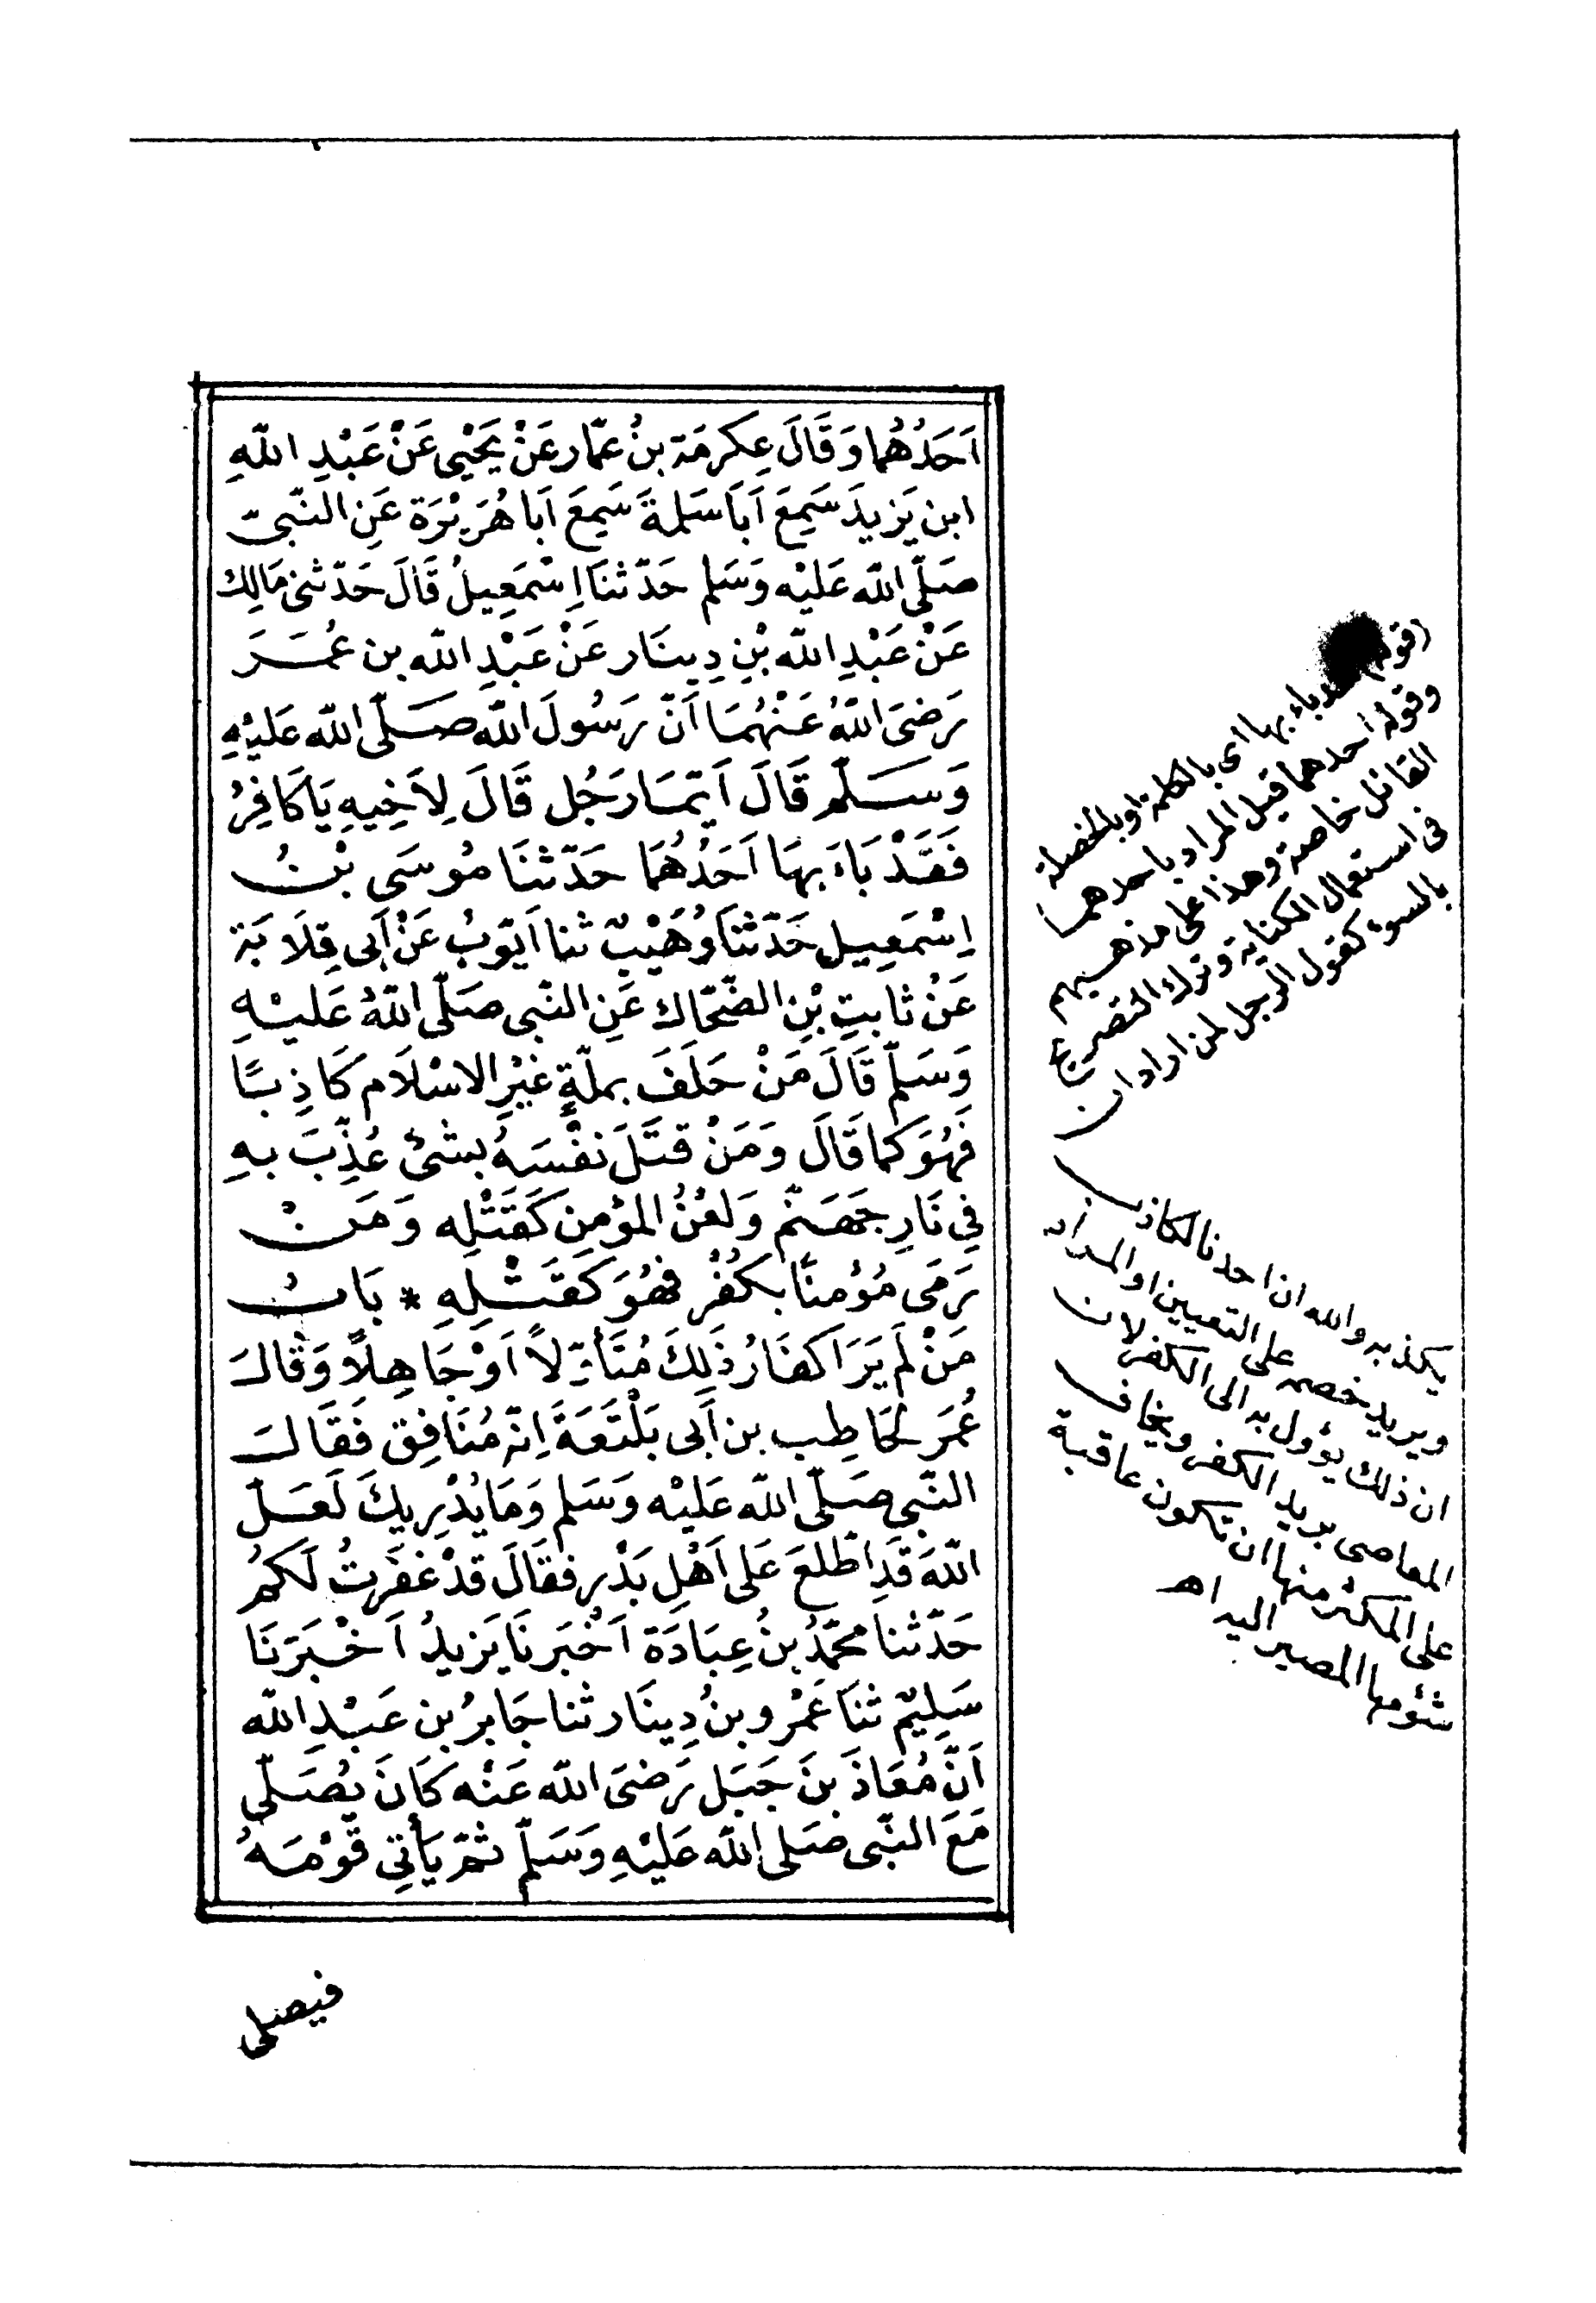 اَحَدُهُمَا وَقَالَ عِكْرِمَة بنُ عمّار عَنْ يَحْيٰى عَنْ عَبْدِ اللّٰهِ
ابن يَزيدَ سَمِعَ اَبَا سَلمةَ سَمِعَ اَبا هُرَيْرَة عَنِ النّبىّ
صَلّى اللّٰه عَليْه وَسَلم حَدّثنَا اِسْمٰعِيلُ قَالَ حَدّثنى مَالِك
عَنْ عَبْدِ اللّٰه بْنِ دِينَار عَنْ عَبْدِ اللّٰه بن عُمَرَ
رَضىَ اللّٰهُ عَنْهُمَا اَنّ رَسُولَ اللّٰه صَلّى اللّٰه عَليْهِ
وَسَلّم قَالَ اَيّمَا رَجُل قَالَ لِاَخِيهِ يَا كَافِرُ
فَقَدْ بَاءَ بهَا اَحَدُهُمَا حَدّثنَا مُوسَى بْنُ
اِسْمٰعِيل حَدّثنَا وُهَيْبٌ ثنا اَيّوبُ عَنْ اَبى قِلَابَة
عَنْ ثَابتِ بْنِ الضّحّاك عَنِ النّبى صَلّى اللّٰهُ عَليْهِ
وَسَلّم قَالَ مَنْ حَلَفَ بملّةٍ غيْرِ الاسْلَام كَاذِبًا
فَهُوَ كَما قَالَ وَمَنْ قتَلَ نَفْسَهُ بشئ عُذّبَ بهِ
فِي نَارِ جَهَنّم وَلَعْنُ المؤمِنِ كَقَتْلِه وَمَنْ
رَمَى مُؤمنًا بكُفْرٍ فهُوَ كَقَتْلِهِ * بَابُ
مَنْ لَم يَرَ اكفَارُ ذٰلِكَ مُتَأوّلاً اَوْ جَاهِلاً وَقَالَ
عُمَرَ لحَاطِب بن اَبى بَلْتَعَةَ اِنّه مُنَافِق فَقَالَ
النّبى صَلّى اللّٰه عَليْه وَسَلم وَمَا يُدْرِيكَ لَعَلّ
اللّٰهَ قَدِ اطّلعَ عَلى اَهْلِ بَدْر فقَالَ قدْ غفَرْتُ لَكمُ
حَدّثنا محمّدُ بنُ عِبَادَة اَخْبَرنَا يَزيدُ اَخْبَرَنَا
سَلِيمٌ ثنَا عَمْرو بنُ دِينَار ثنا جَابرُ بن عَبْدِ اللّٰه
اَنّ مُعَاذَ بنَ جَبَل رَضىَ اللّٰه عَنْه كَانَ يُصَلّى
مَعَ النّبى صَلى اللّٰه عَليْهِ وَسَلّم ثمّ يَأتِى قَوْمَهُ
(قوله باء بها اى بالكلمة او بالخصلة
وقوله احدهما قيل المراد باحدهما
القائل خاصة وهذا على مذهبهم
فى استعمال الكناية وترك التصريح
بالسوء كقول الرجل لمن اراد ان
يكذبه والله ان احدنا لكاذب
ويريد خصمه على التعيين او المراد
ان ذلك يؤول به الى الكفر لان
المعاصى بريد الكفر ويخاف
على المكثر منها ان تكون عاقبة
شؤمها المصير اليه اهـ
فيصلى